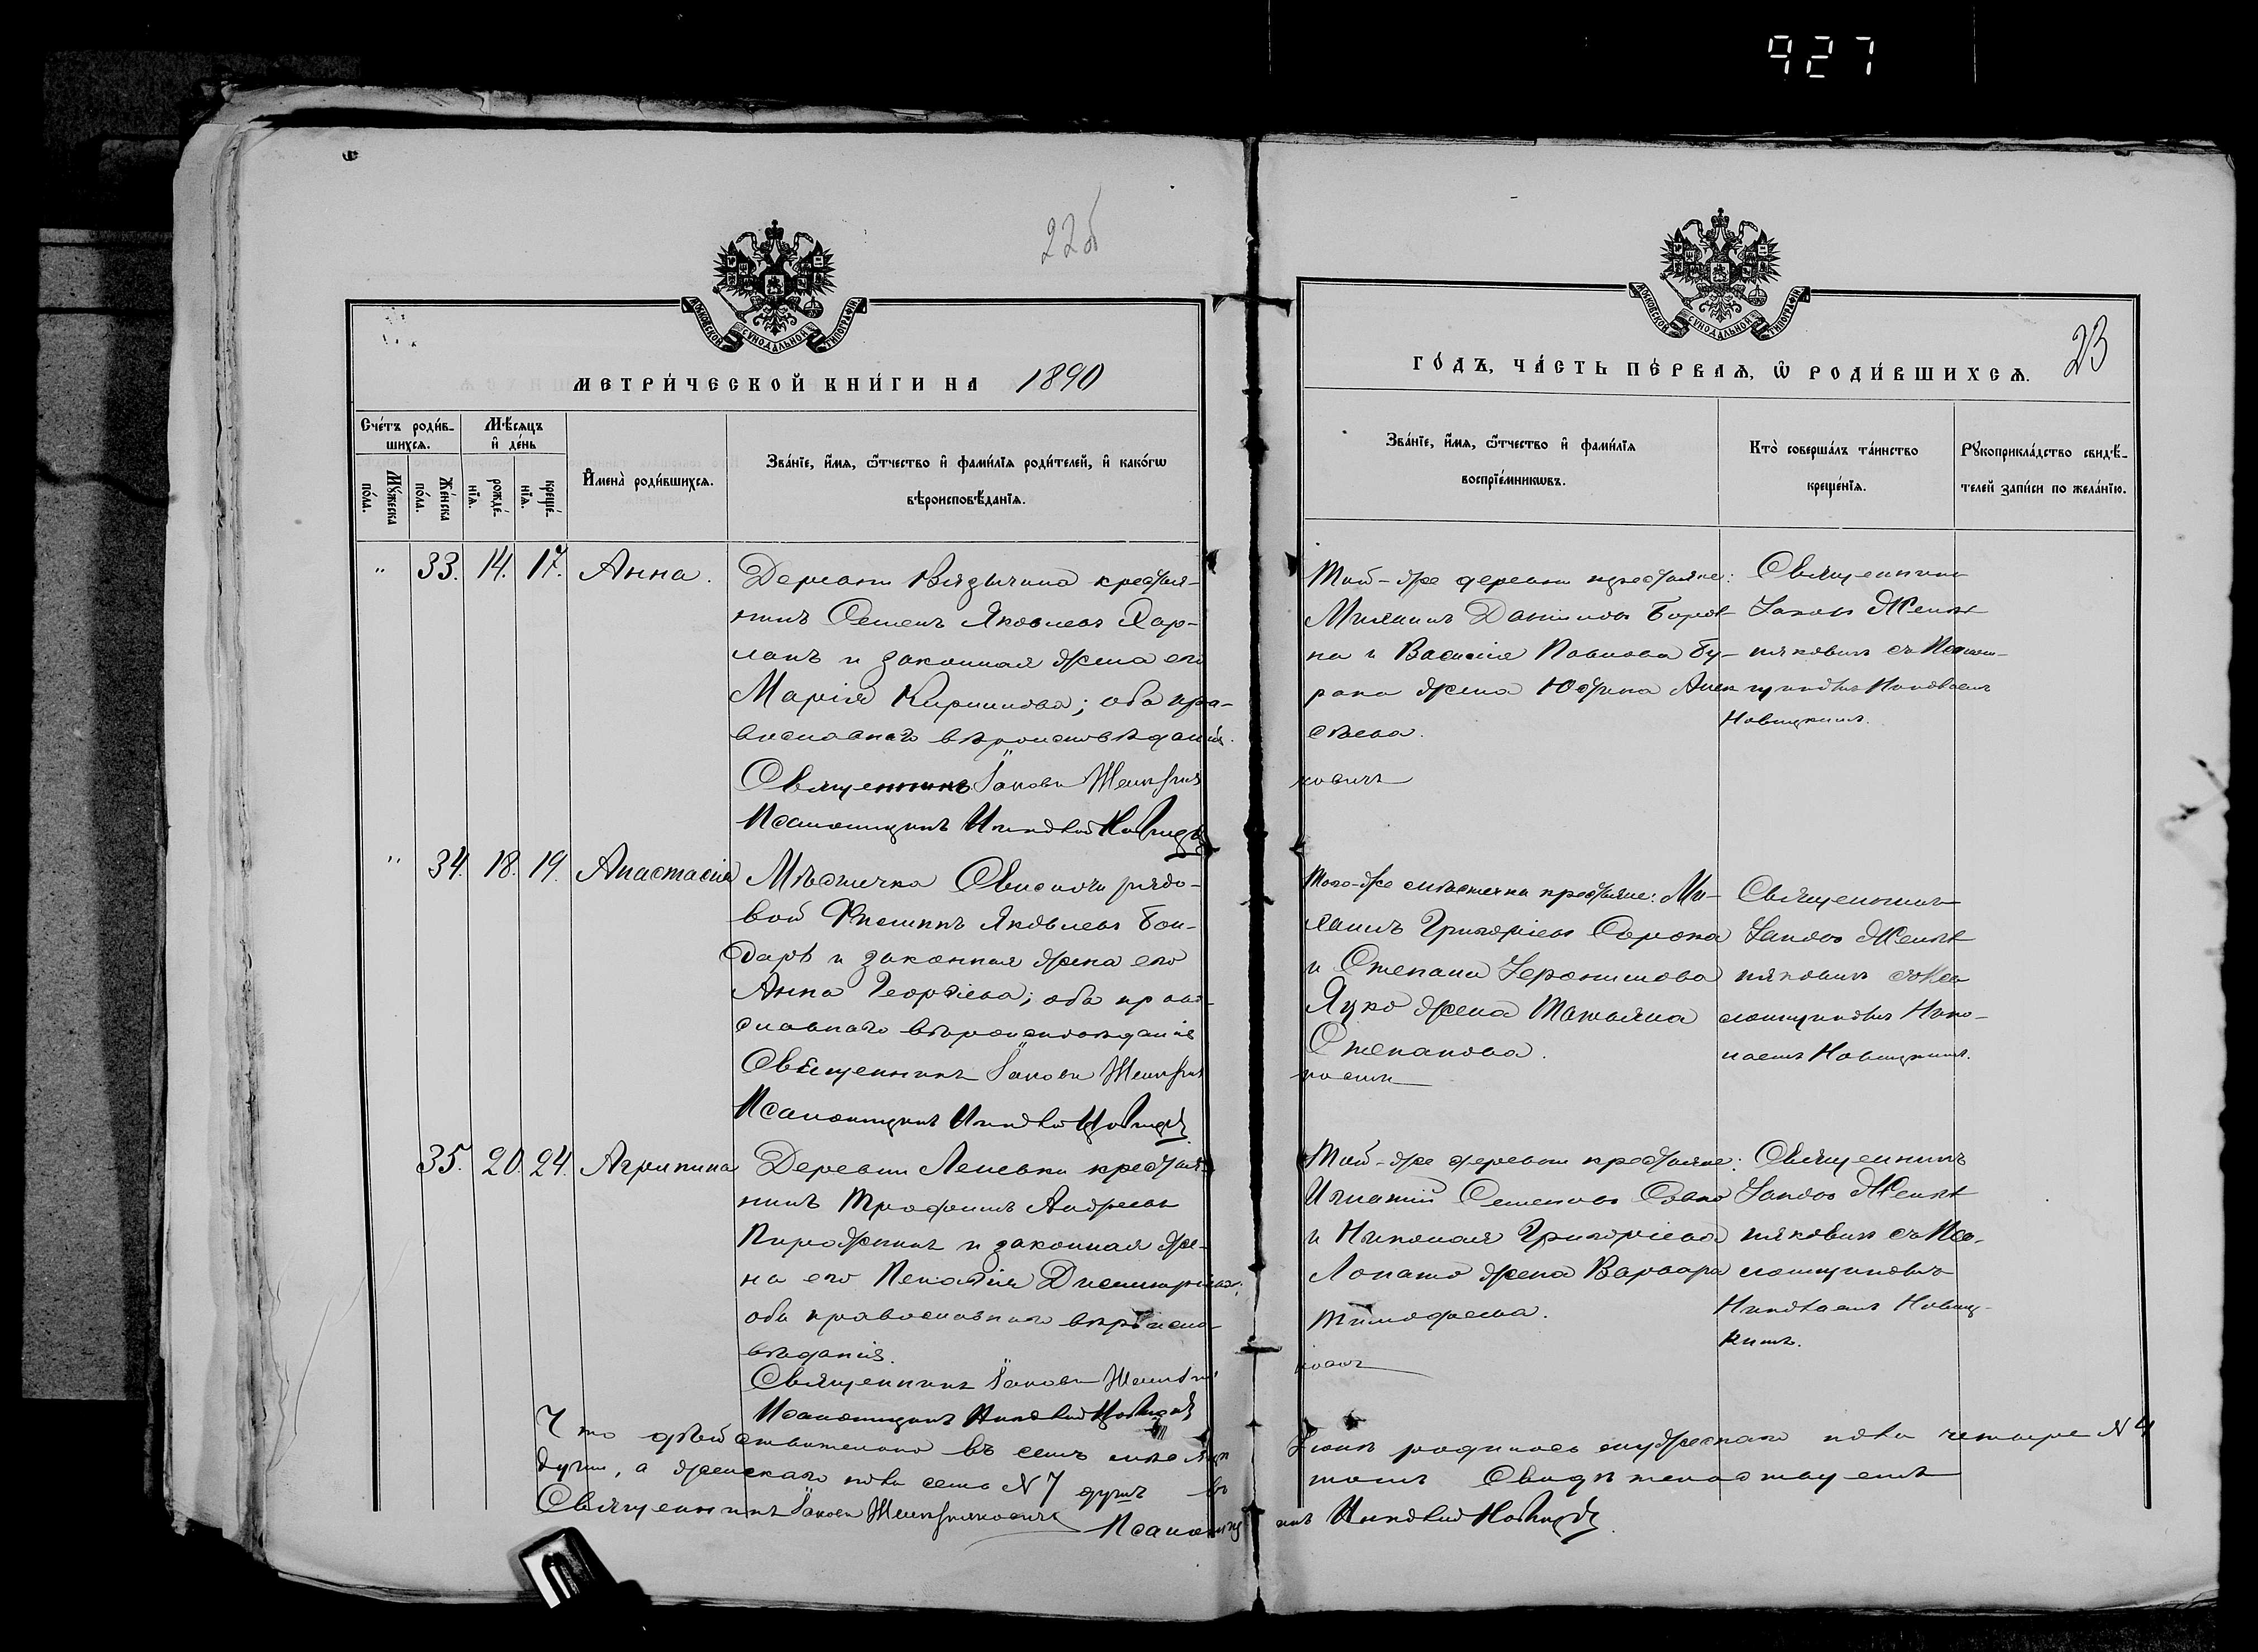 927
22б
МОСКОВСКОЙ СУНОДАЛЬНОЙ ТИПОГРАФІИ
МЕТРИ́ЧЕСКОЙ КНИ́ГИ НА 1890
Сче́тъ роди́в-
шихсѧ.
Мѣ́сѧцъ
и҆ де́нь
Мꙋ́жеска
по́ла.
Же́нска
по́ла.
рожде́-
нїѧ.
креще́-
нїѧ.
И҆мена̀ роди́вшихсѧ.
Зва́нїе, и҆́мѧ, ѻ҆́тчество и҆ фами́лїѧ роди́телей, и҆ како́гѡ
вѣроисповѣ́данїѧ.
" 33. 14. 17. Анна.
Деревни крестья-
нинъ Семенъ Яковлевъ Хар-
ланъ и законная жена его
Марія Кириллова; оба пра-
вославнаго вѣроисповѣданія.
Священникъ Іаковъ
Псаломщикъ Николай Новицкій
" 34. 18. 19. Анастасія
Мѣстечка Свислочи рядо-
вой Филиппъ Яковлевъ Бон-
дарь и законная жена его
Анна Георгіева; оба право-
славнаго вѣроисповѣданія
Священникъ Іаковъ
Псаломщикъ Николай Новицкій
35. 20. 24. Агрипина
Деревни крестья-
нинъ Трофимъ Андреевъ
Пирожникъ и законная же-
на его Пелагія Димитріева;
оба православнаго вѣроиспо-
вѣданія.
Священникъ Іаковъ
Псаломщикъ Николай Новицкій
Что дѣйствительно въ семъ
душъ, а женскаго пола семь № 7 душъ въ
Священникъ Іаковъ
Псаломщ
МОСКОВСКОЙ СУНОДАЛЬНОЙ ТИПОГРАФІИ
ГО́ДЪ, ЧА́СТЬ ПЕ́РВАѦ, Ѡ҆ РОДИ́ВШИХСѦ.
23
Зва́нїе, и҆́мѧ, ѻ҆́тчество и҆ фами́лїѧ
воспрїе́мникѡвъ.
Кто̀ соверша́лъ та́инство
креще́нїѧ.
Рꙋкоприкла́дство свидѣ́-
телей за́писи по жела́нїю.
Той-же деревни крестьяне:
Михаилъ Даниловъ
и Василія Павлова Бу-
рака жена Юстина Алек
сѣева.
ковичъ
Священникъ
Іаковъ
съ Псалом-
щикомъ Николаемъ
Новицкимъ.
Того-же мѣстечка крестьяне: Ми-
хаилъ Григоріевъ Сорока
и Степана Іеронимова
Яцко жена Татьяна
Степанова.
ковичъ
Священникъ
Іаковъ
съ Пса
ломщикомъ Нико-
лаемъ Новицкимъ.
Той-же деревни крестьяне:
Игнатій Семеновъ
и Николая Григоріева
Лопато жена Варвара
Тимофеева.
ковичъ
Священникъ
Іаковъ
съ Пса-
ломщикомъ
Николаемъ Новиц-
кимъ.
родилось мужескаго пола четыре № 4
томъ Свидѣтельствуемъ
икъ Николай Новицкій